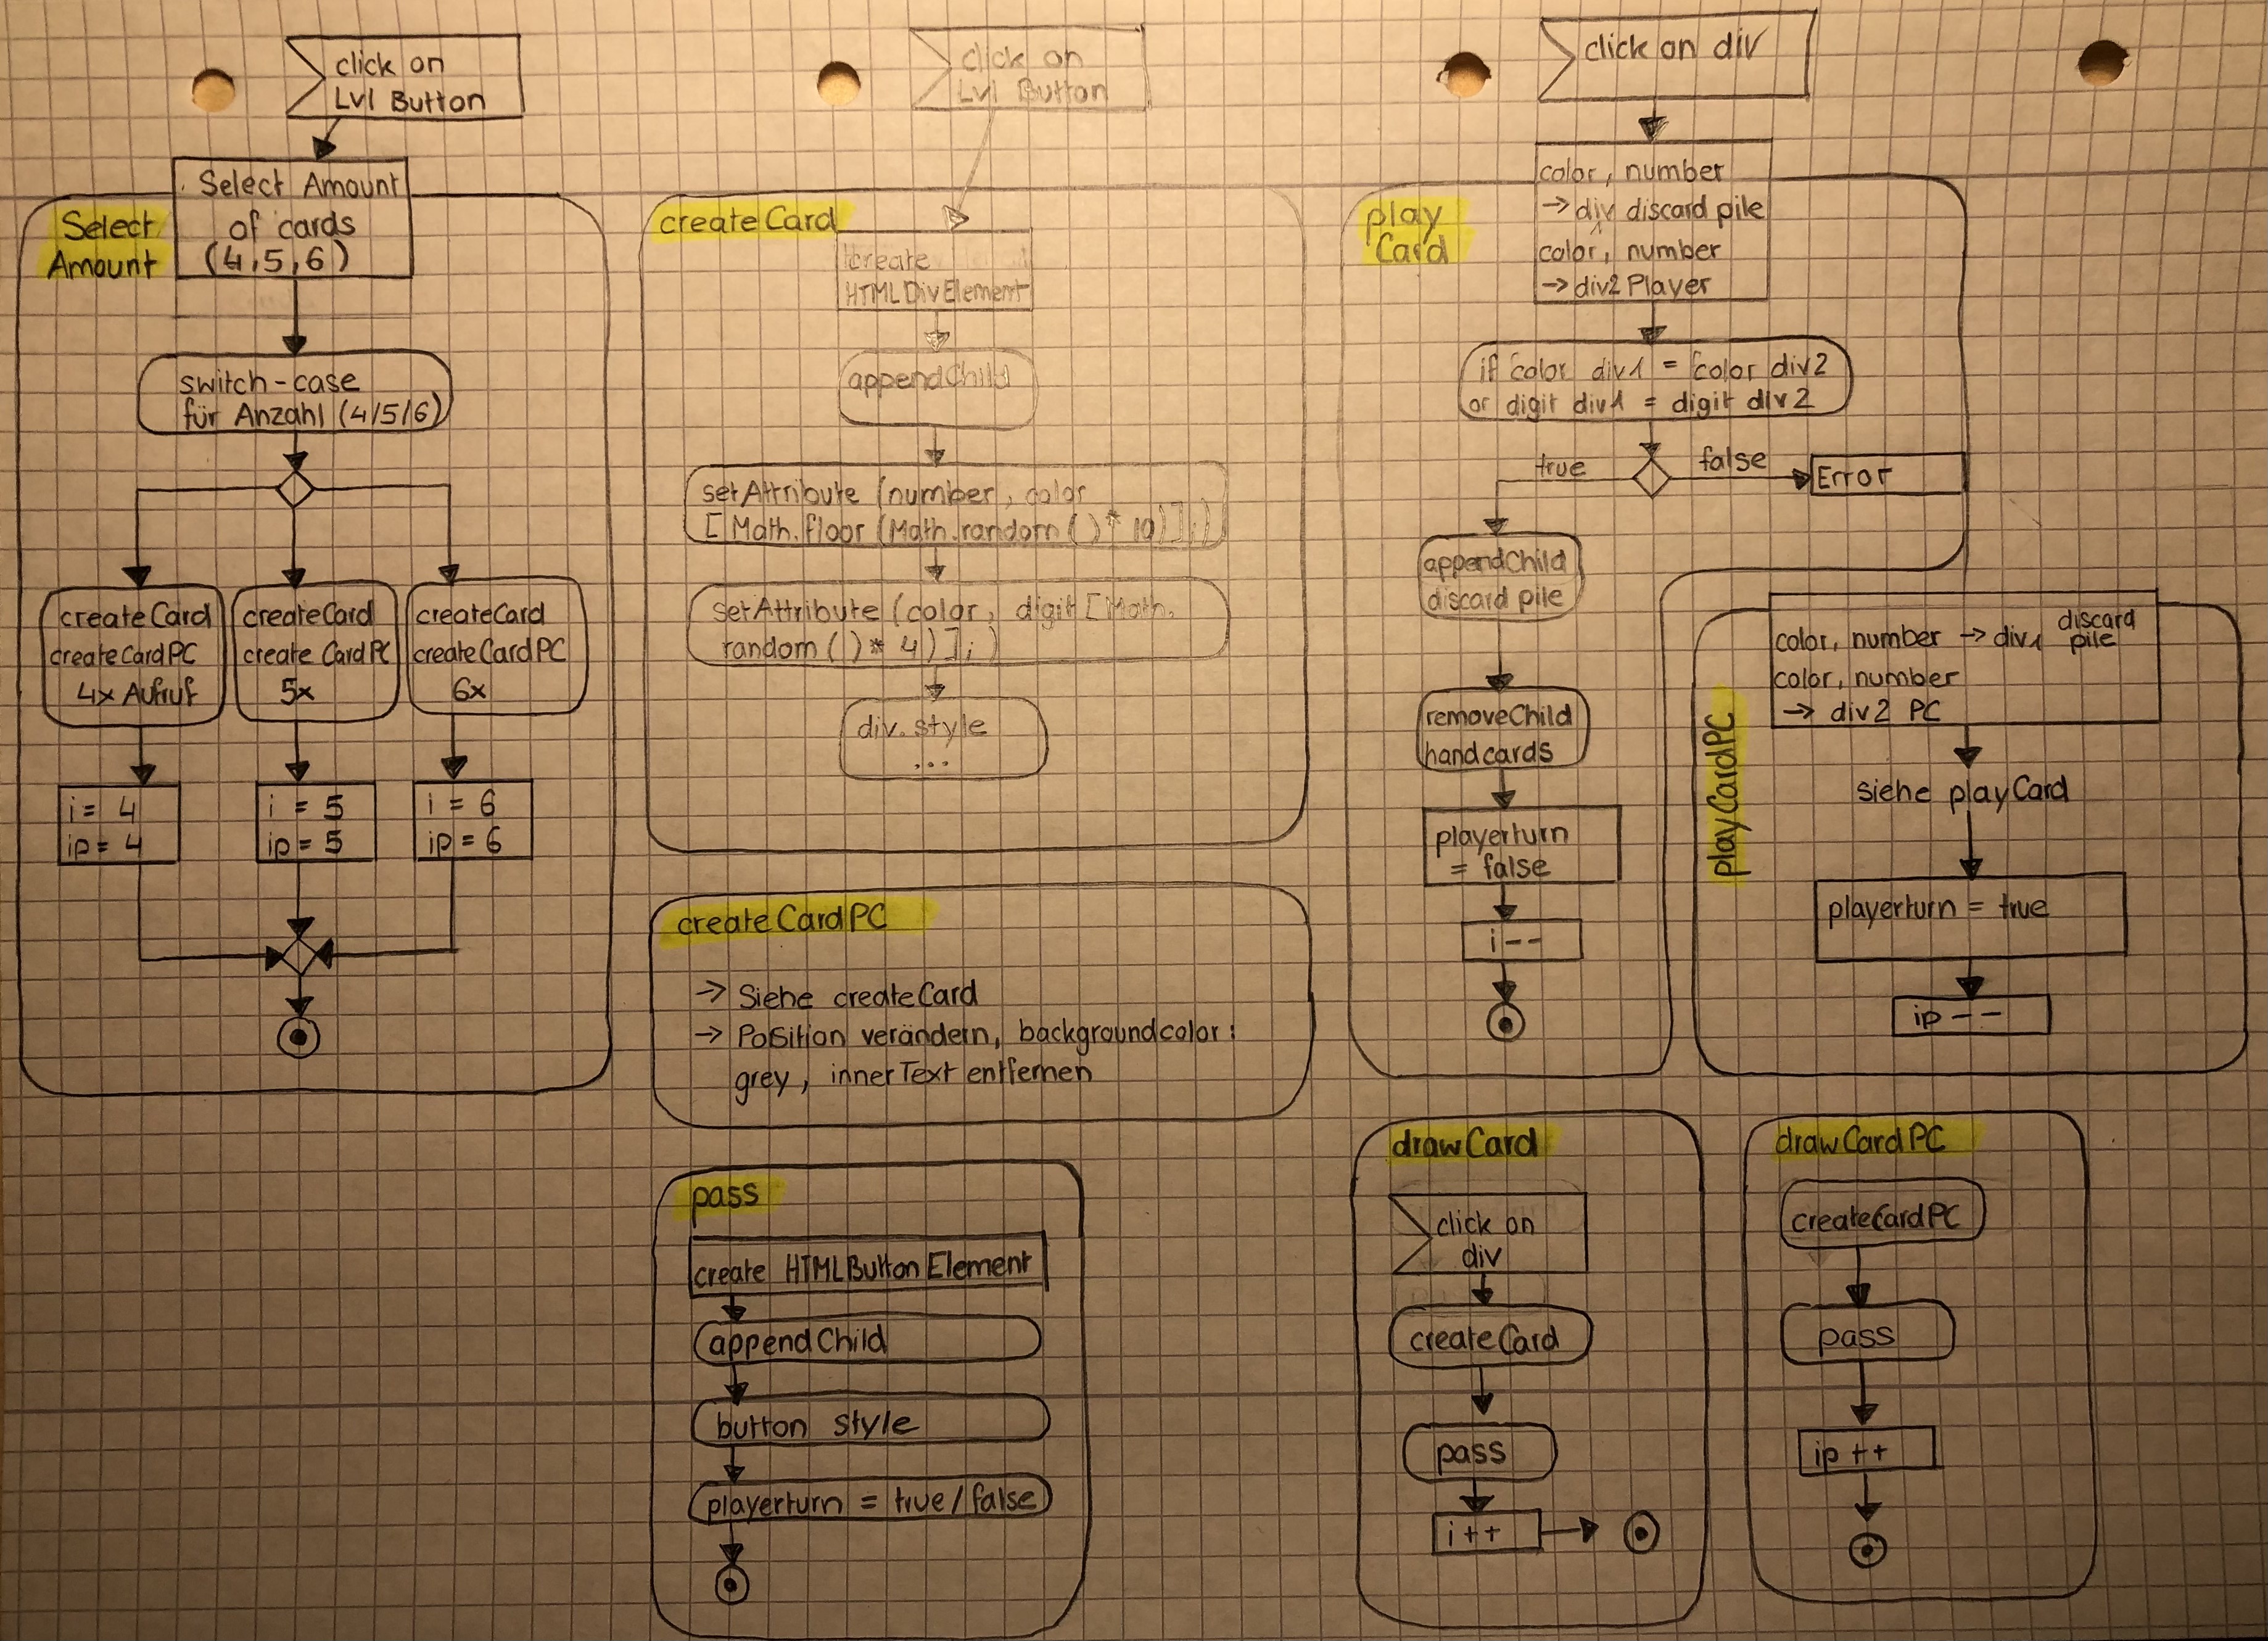 click on
Lvl Button
Select
Amount
Select Amount
of cards
(4,5,6)
switch-case
für Anzahl (4/5/6)
createCard
createCardPC
4x Aufruf
createCard
createCardPC
5x
createCard
createCardPC
6x
i = 4
ip = 4
i = 5
ip = 5
i = 6
ip = 6
click on
Lvl Button
createCard
create
HTMLDivElement
appendChild
setAttribute (number, color
[Math.floor (Math.random () * 10)];)
setAttribute (color, digit [Math.
random () * 4)]; )
div.style
...
createCardPC
→ Siehe createCard
→ Position verändern, backgroundcolor:
grey, innerText entfernen
pass
create HTMLButtonElement
appendChild
button style
playerturn = true/false
click on div
play
Card
color, number
→ div discard pile
color, number
→ div2 Player
if color div1 = color div2
or digit div1 = digit div2
true
false
Error
appendChild
discard pile
removeChild
handcards
playerturn
= false
i--
playCardPC
color, number → div1 discard
pile
color, number
→ div2 PC
siehe playCard
playerturn = true
ip --
drawCard
click on
div
createCard
pass
i++
drawCardPC
createCardPC
pass
ip ++